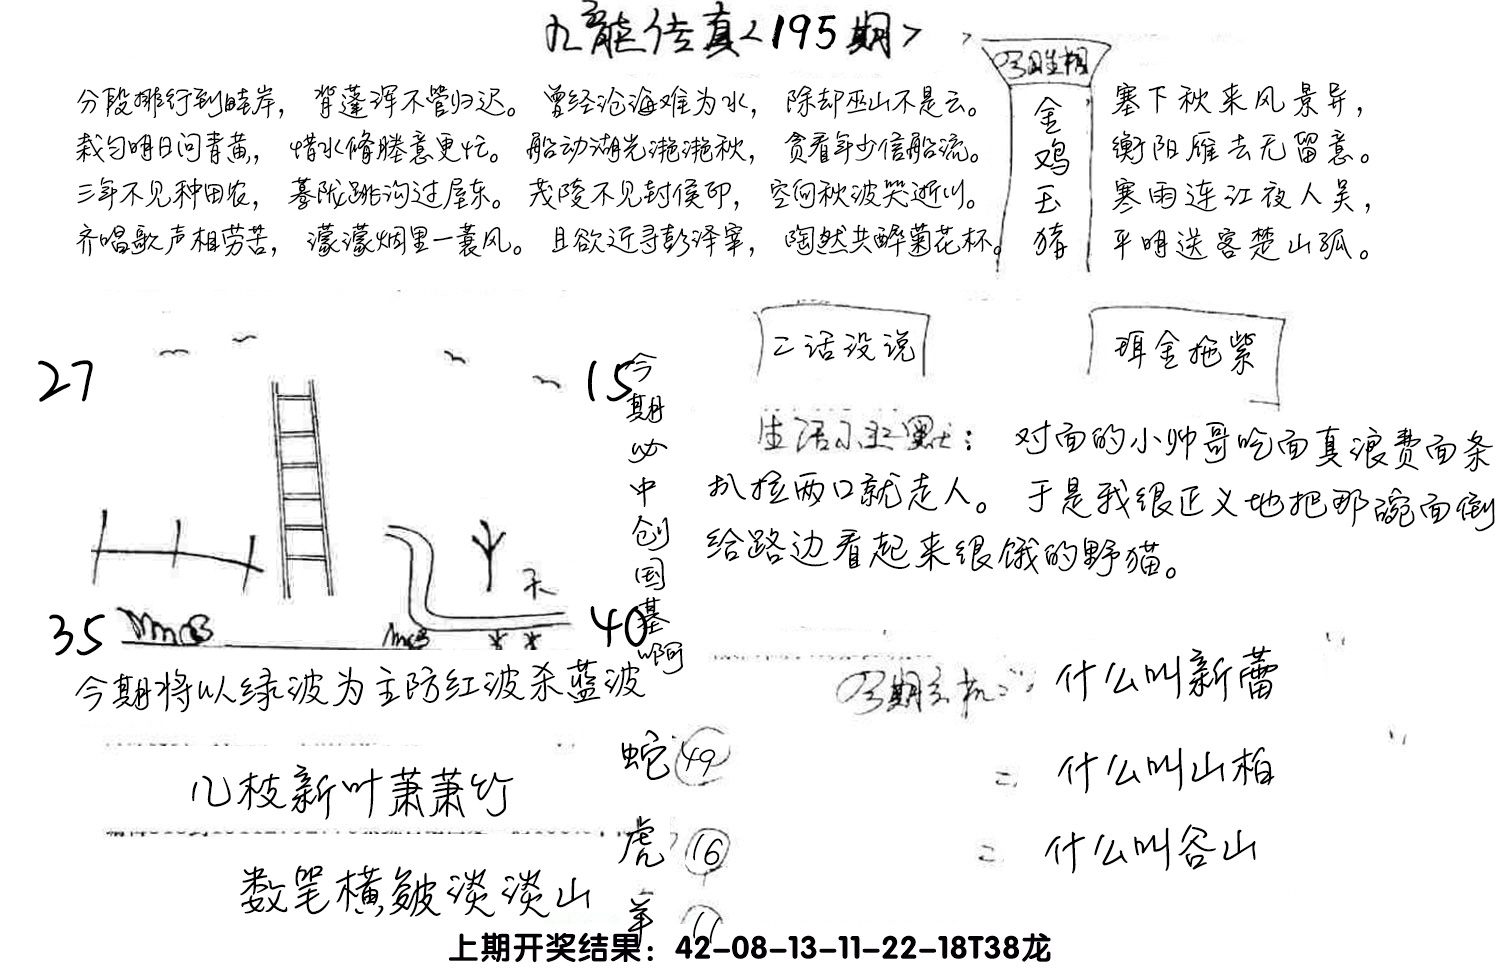 九龍传真<195期>
分段排行到畦岸，背蓬浑不管归迟。曾经沧海难为水，除却巫山不是云。
栽匀明日问青黄，惜水脩塍意更忙。船动湖光滟滟秋，贪看年少信船流。
三年不见种田农，暮陇跳沟过屋东。茂陵不见封侯印，空向秋波哭逝川。
齐唱歌声相劳苦，濛濛烟里一蓑风。且欲近寻彭泽宰，陶然共醉菊花杯。
金鸡玉猪
塞下秋来风景异，
衡阳雁去无留意。
寒雨连江夜人吴，
平明送客楚山孤。
27
15
35
40
今期必中创国基啊
今期将以绿波为主防红波杀蓝波
二话没说
珥金拖紫
对面的小帅哥吃面真浪费面条
扒拉两口就走人。于是我很正义地把那碗面倒
给路边看起来很饿的野猫。
什么叫新蕾
什么叫山柏
什么叫谷山
几枝新叶萧萧竹
数笔横皴淡淡山
蛇 49
虎 16
羊 11
上期开奖结果：42-08-13-11-22-18T38龙